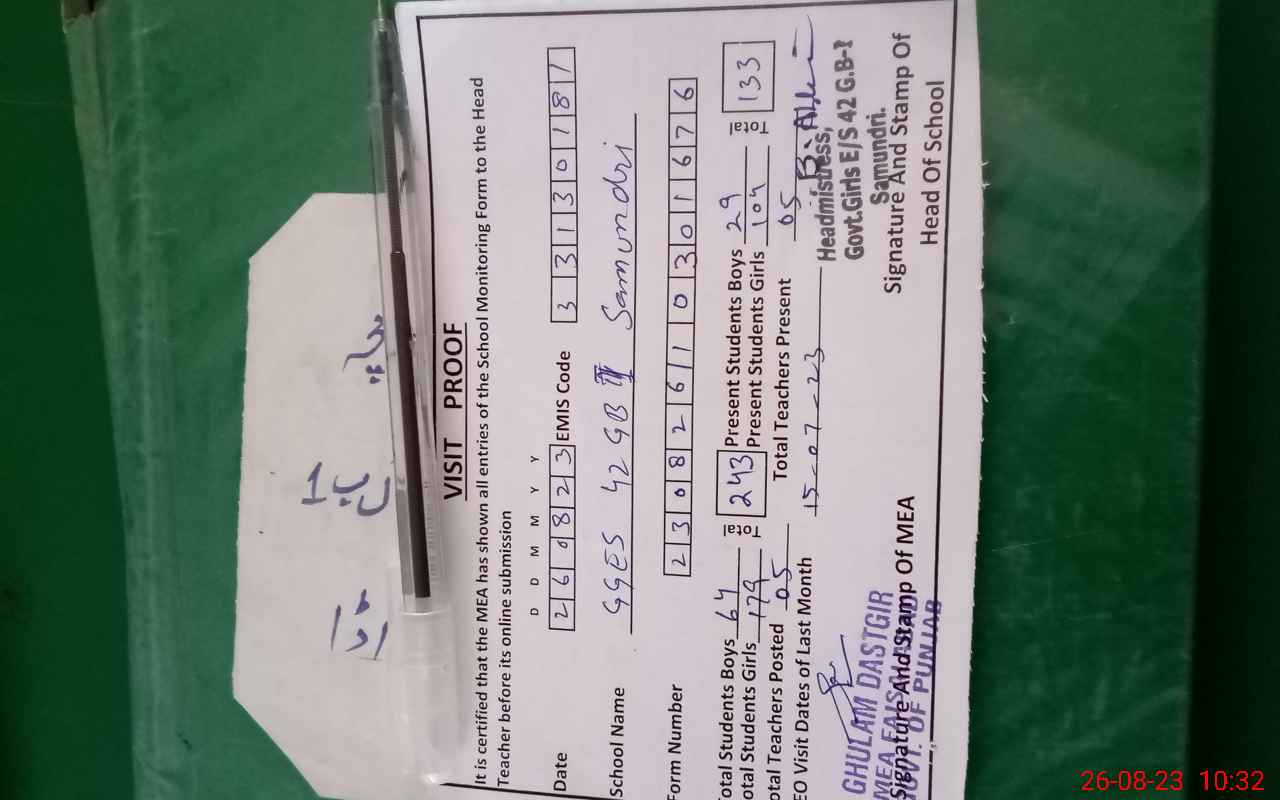 VISIT PROOF
It is certified that the MEA has shown all entries of the School Monitoring Form to the Head
Teacher before its online submission
D D M M Y Y
Date 260823 EMIS Code 33130181
School Name GGES 42 GB II Samundri
Form Number 230826110301676
otal Students Boys 64 Total 243 Present Students Boys 29 Total 133
otal Students Girls 179 Present Students Girls 104
otal Teachers Posted 05 Total Teachers Present 05
EO Visit Dates of Last Month 15-07-23
Headmistress,
Govt.Girls E/S 42 G.B-
Samundri.
Signature And Stamp Of
Head Of School
GHULAM DASTGIR
MEA FAISALABAD
Signature And Stamp Of MEA
GOVT. OF PUNJAB
26-08-23 10:32